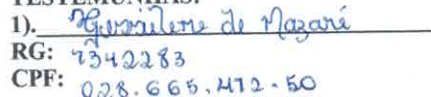 TESTEMUNHAS:
1). de Nazaré
RG: 7342283
CPF: 028.665.412-50